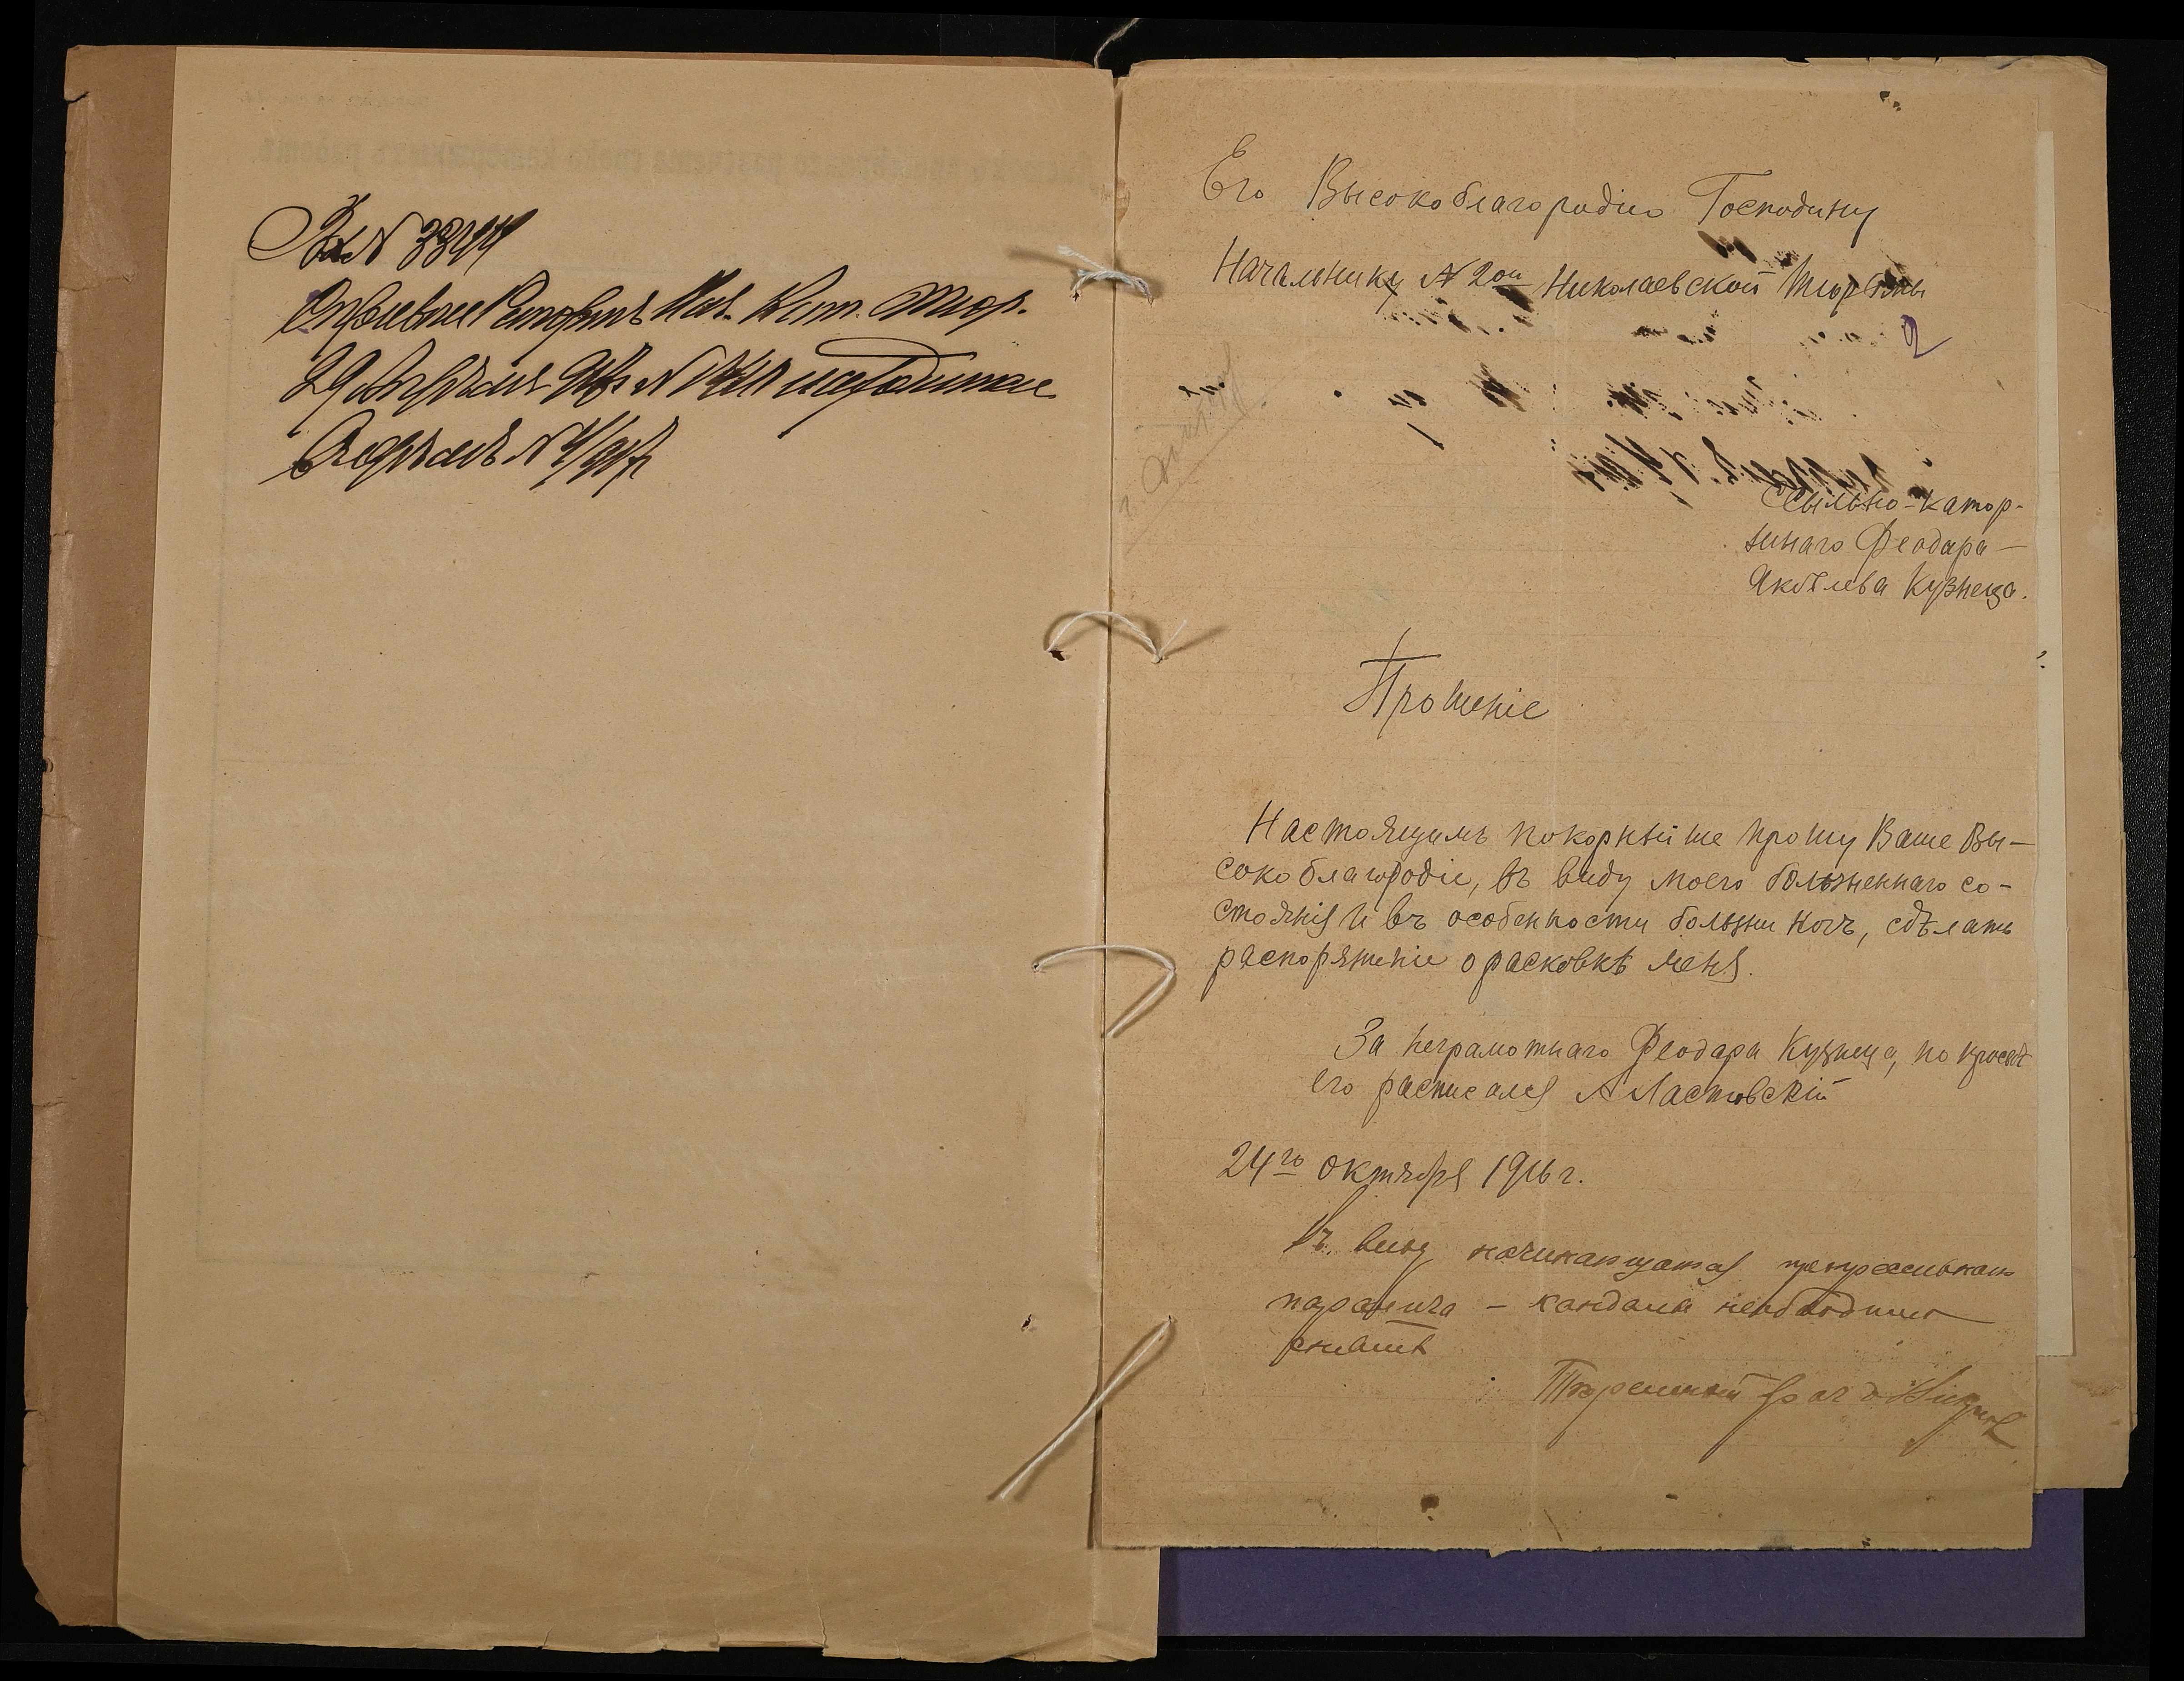 Вх № 3344
Нач. Кат. Тюр.
29 Апрѣля
№ 4/917
Его Высокоблагородию Господину
Начальнику № 2ой Николаевской Тюрьмы
2
Ссыльно-катор-
жнаго Феодара
Яковлева Кузнеца.
Прошеніе
Настоящимъ покорнѣйше прошу Ваше Вы-
сокоблагородіе, въ виду моего болѣзненнаго со-
стоянія и въ особенности болѣзни ногъ, сдѣлать
распоряженіе о расковкѣ меня.
За неграмотнаго Феодара Кузнеца, по просьбѣ
его расписался А Ластовскій
24го октября 1916 г.
Въ виду начинающагося прогрессивнаго
паралича – кандалы необходимо
снять
Тюремный врач